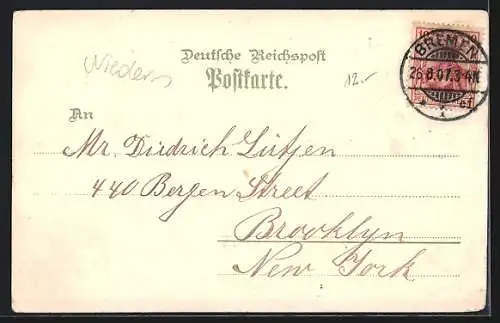 Deutsche Reichspost
Postkarte.
12.-
BREMEN
26.8.07.3-4N
An
Mr. Diedrich Lütjen
440 Bergen Street
Brooklyn
New York